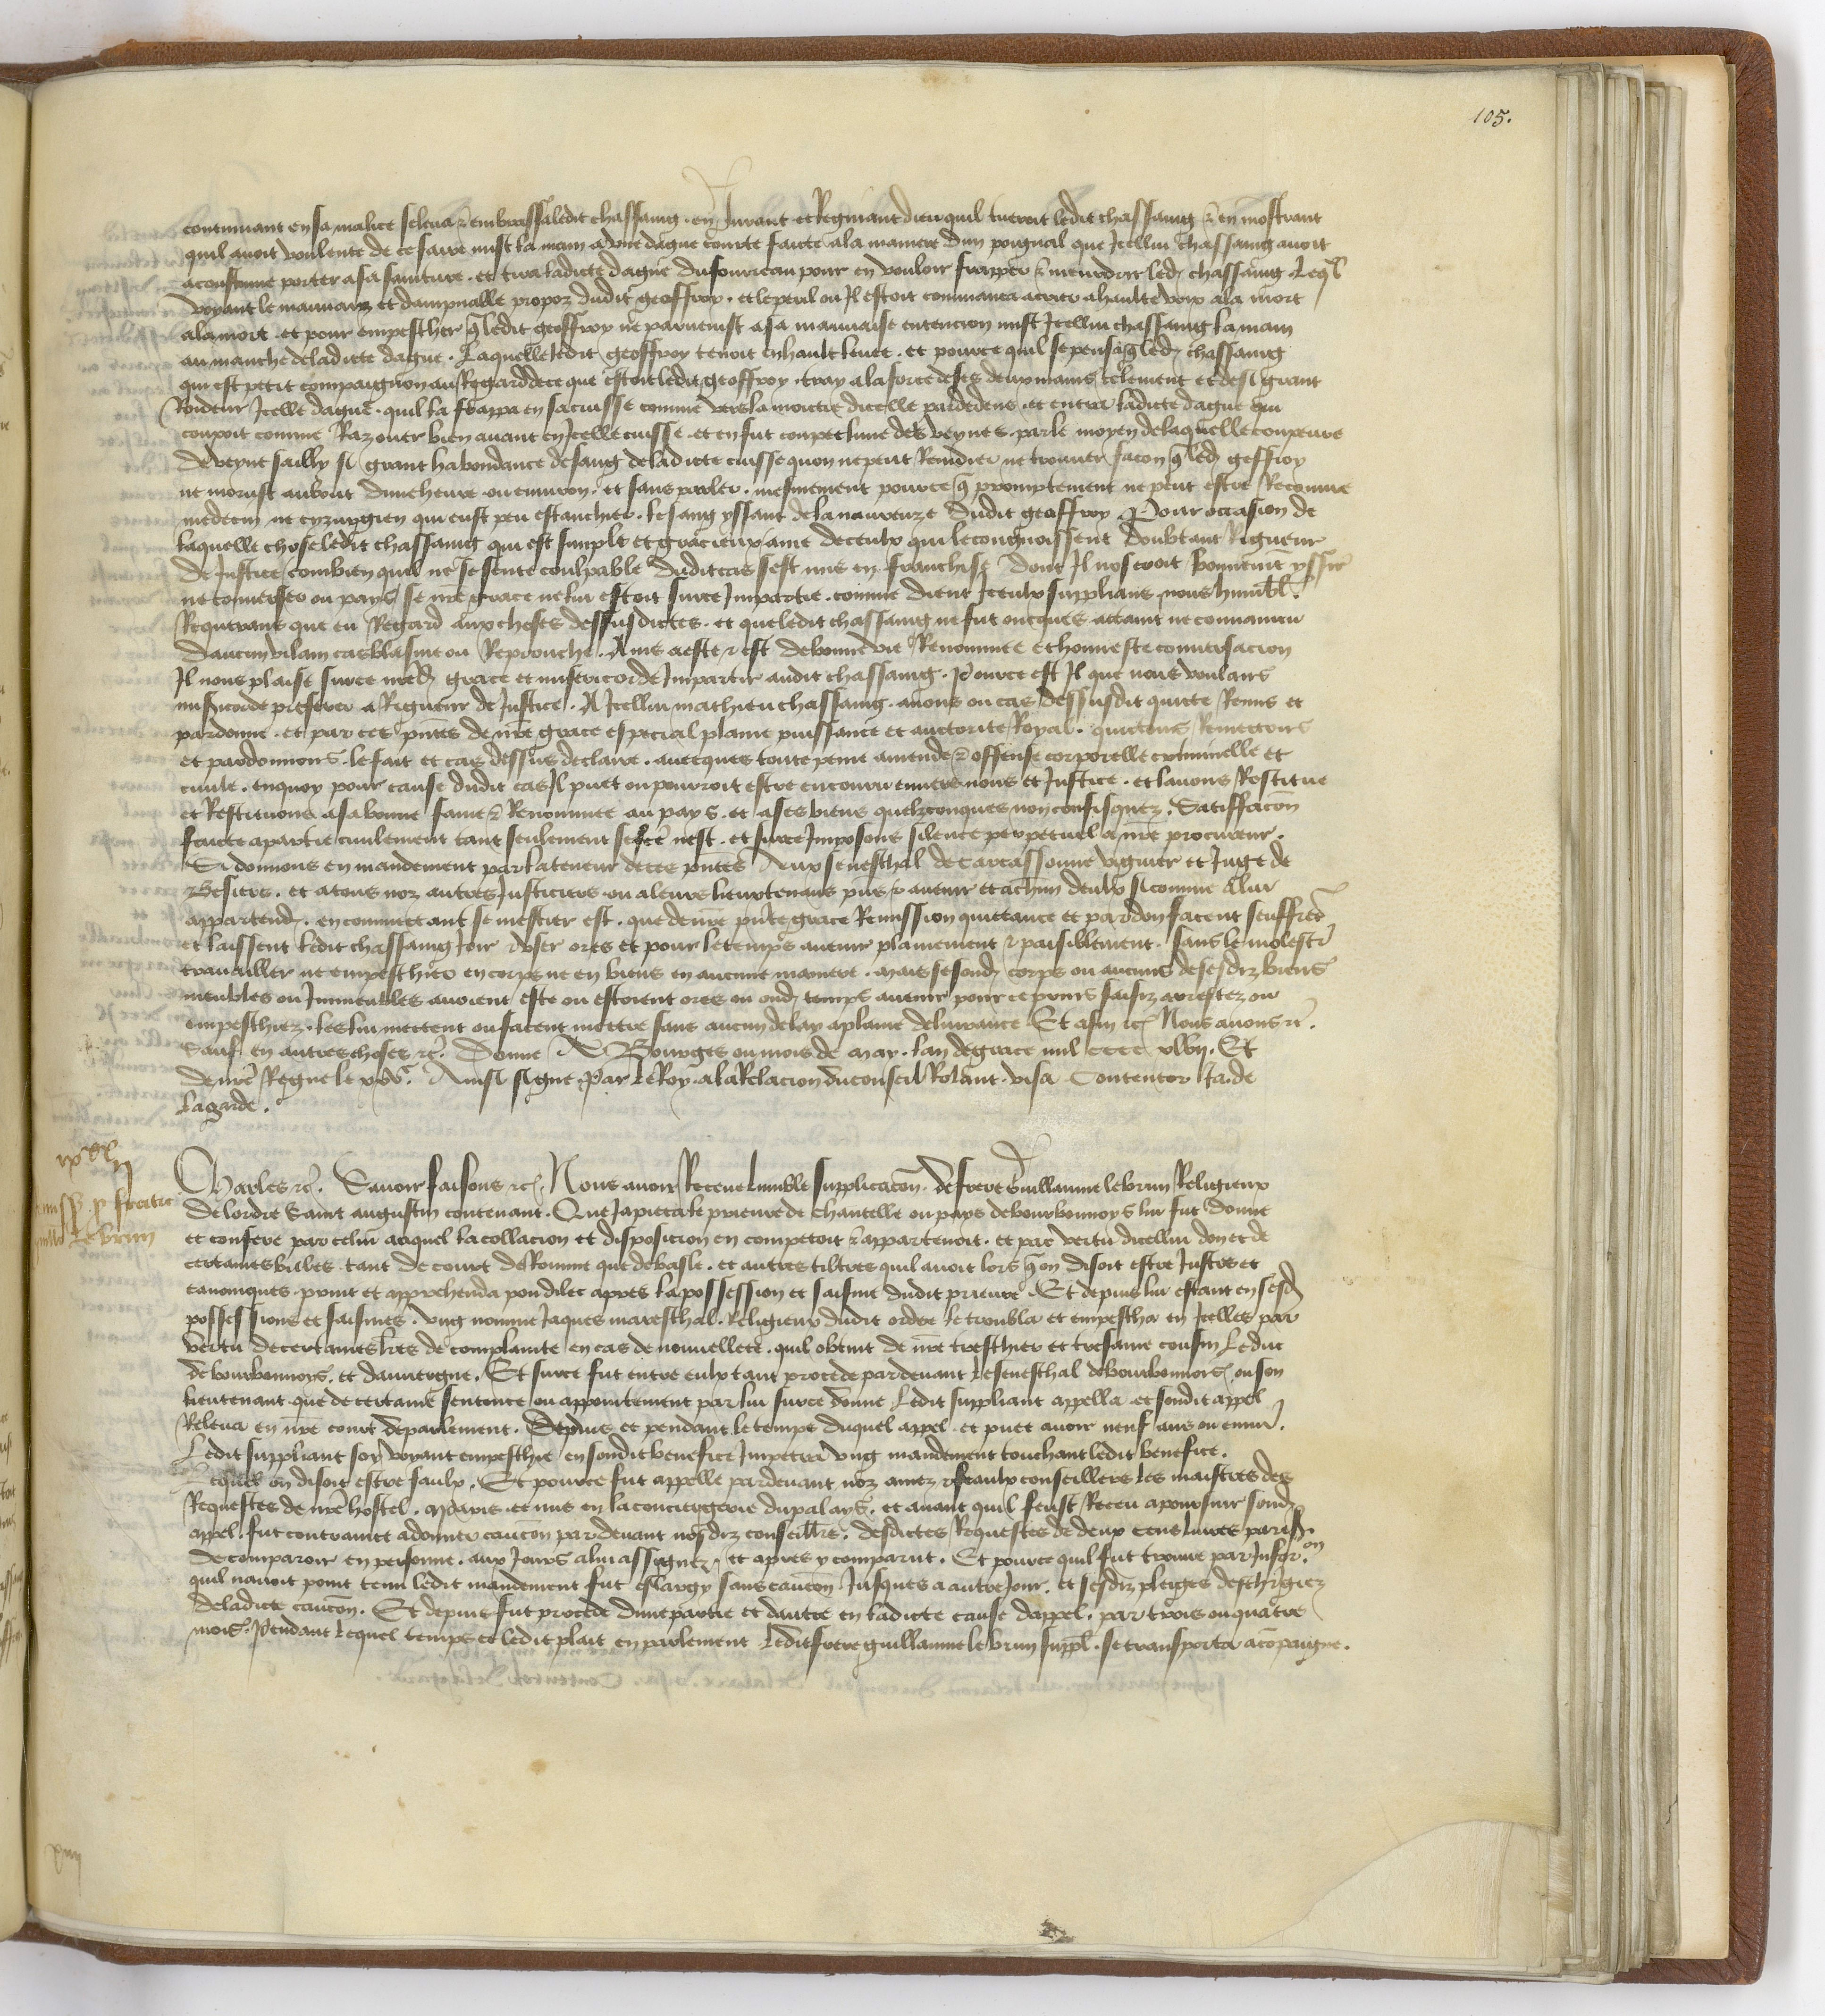 105.
continuant en sa malice se leva & embrassa ledit chassaing. en Jurant et Regniant dieu quil tueroit ledit chassaing & en mostrant
quil avoit voulente de ce faire mist la main a une dague courte faicte a la maniere dun poignal que Icellui chassaing avoit
acoustume porter a sa sainture. et tira ladicte dague du fourreau pour en vouloir frapper & meurdrir led chassaing. Leql
voyant le mauvaiz et dampnable propoz dudit geoffroy. et le peril ou Il estoit commanca a crier a haulte voix a la mort
a la mort. et pour empescher q ledit geoffroy ne parvenist a sa mauvaise entencion mist Icellui chassaing la main
au manche de ladicte dague. Laquelle ledit geoffroy tenoit en hault levee. et pource quil se pensa q led chassaing
qui est petit compaignon au Regard de ce que estoit ledit geoffroy. tray a la force de ses deux mains telement et de si grant
Roideur Icelle dague. quil la frappa en sa cuisse comme vers la moictie dicelle par dedens. et entra ladicte dague qui
coupoit comme Razouer bien avant en Icelle cuisse. et en fut coupee lune des veynes. par le moyen de laquelle coupeure
de veyne sailly si grant habondance de sang de ladicte cuisse quon ne peut Remedier ne trouver facon q led geffroy
ne morust au bout dune heure ou environ. et sans parler. mesmement pource q promptement ne peut estre Recouvre
medecin ne cyrurgien qui eust peu estanchier. le sang yssant de la navreure dudit geoffroy Pour occasion de
laquelle chose ledit chassaing qui est simple et gracieux ame de ceulx qui le congnoissent doubtant Rigueur
de Justice combien quil ne se sente coulpable dudit cas sest mis en franchise dont Il noseroit bonnemt yssir
ne converser ou pays se nre grace ne lui estoit sur ce Impartie. comme dient Iceulx supplians nous humbl.
Requerans que eu Regard aux choses dessusdictes. et que ledit chassaing ne fut oncques attaint ne convaincu
daucun vilain cas blasme ou Reprouche. Ains a este & est de bonne vie Renommee et honneste conversacion
Il nous plaise sur ce nred grace et misericorde Impartir audit chassaing. Pource est Il que nous voulans
misericorde preferer a Rigueur de Justice. A Icellui mathieu chassaing. avons ou cas dessusdit quicte Remis et
pardonne. et par ces pntes de nre grace especial plaine puissance et auctorite Royal. quictons Remettons
et pardonnons. le fait et cas dessus declaire. avecques toute peine amende & offense corporelle criminelle et
civile. en quoy pour cause dudit cas Il puet ou pourroit estre encouru envers nous et Justice. et lavons Restitue
et Restituons a sa bonne fame & Renommee au pays. et a ses biens quelzconques non confisquez. Satiffacon
faicte a partie civilement tant seulement se fce nest. et sur ce Imposons silence perpetuel a nre procureur.
Si donnons en mandement par la teneur de ces pntes Aux seneschal de Carcassonne viguier et Juge de
Besiers. et a tous noz autres Justiciers. ou a leurs lieuxtenans pns & avenir et a chun deulx si comme a lui
appartend. en commectant se mestier est. que de nre pnte grace Remission quictance et pardon facent seuffret
et laissent ledit chassaing Joir & user ores et pour le temps avenir plainement & paisiblement. Sans le molestr
travailler ne empeschier en corps ne en biens en aucune maniere. mais se sond corps ou aucuns de sesdiz biens
meubles ou Immeubles avoient este ou estoient ores ou ond temps avenir pour ce prins saisiz arrestez ou
empeschiez. les lui mettent ou facent mettre sans aucun delay a plaine delivrance Et afin etc Nous avons etc.
Sauf en autres choses etc. Donne A Bourges ou mois de may. lan de grace mil cccc xlvij. Et
de nre Regne le xxve. Ainsi signe. Par le Roy. a la Relacion du conseil Rolant. visa Contentor Ja. de
lagarde.
Charles etc. Savoir faisons etc. Nous avoir Receue lumble supplicacon. De frere Guillaume lebrun Religieux
de lordre Saint augustin contenant. Que Japieca le prieure de chantelle ou pays de bourbonnoys lui fut donne
et confere par celui auquel la collacion et disposicion en competoit & appartenoit. et par vertu dicellui don et de
certaines bulles tant de court de Romme que de basle. et autres tiltres quil avoit lors q on disoit estre Justes et
canoniques. print et apprehenda pou dilec apres la possession et saisine dudit prieure. Et depuis lui estant en sesd
possessions et saisines. ung nomme Jaques mareschal. Religieux dudit ordre le troubla et empescha en Icelles par
vertu de certaines lres de complainte en cas de nouvellete. quil obtint de nre treschier et tresame cousin le duc
de bourbonnoys. et dauvergne. Et sur ce fut entre eulx tant procede par devant le seneschal de bourbonnois. ou son
lieutenant que de certaine sentence ou appointement par lui sur ce donne ledit suppliant appella et sondit appel
Releva en nre court de parlement. Depuis et pendant le temps duquel appel. et puet avoir neuf ans ou envir.
Ledit suppliant soy voyant empeschie en sondit benefice Impetra ung mandement touchant ledit benefice.
Lequel on disoit estre faulx. Et pource fut appelle par devant noz amez & feaulx conseillers les maistres des
Requestes de nre hostel. a paris. et mis en la conciergerie du palays. et avant quil feust Receu a poursuir sond
appel. fut contrainct a donner caucon par devant nosdiz conseillrs. desdictes Requestes de deux cens livres paris.
de comparoir en personne. aux Jours a lui assignez. et apres y comparut. Et pource quil fut trouve par Infor.on
quil navoit point tenu ledit mandement fut eslargy sans caucon Jusques a autre Jour. et sesdiz pleiges deschargiez
de ladicte caucon. Et depuis fut procede dune partie et dautre en ladicte cause dappel. par trois ou quatre
mois. Pendant lequel temps et ledit plait en parlement ledit frere guillaume lebrun suppl. se transporta acopaigne.
Remiss. p fratre
lebrun